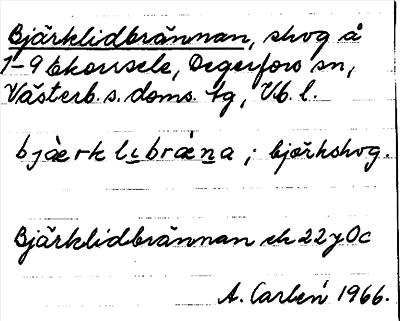 Bjärklidbrännan, skog å
1-9 Ekorrsele, Degerfors sn,
Västerb. s. doms. tg, Vb. l.
bjæ̀rklıbrǽna ; björkskog.
Bjärklidbrännan ek 22y0c
A. Carlén 1966.